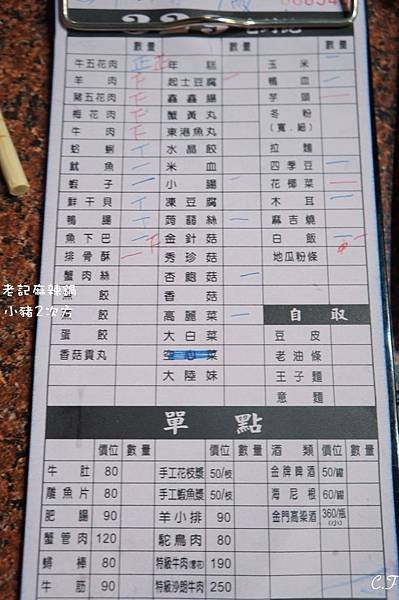 數量 數量 數量
牛五花肉 正正 年糕 玉米 一
羊肉 正 起士豆腐 鴨血 一
豬五花肉 正 鑫鑫腸 芋頭 一
梅花肉 正 蟹黃丸 冬粉
牛肉 正 東港魚丸 (寬.細)
蛤蜊 水晶餃 拉麵
魷魚 一 米血 四季豆 一
蝦子 一 小腸 一 花椰菜 一
鮮干貝 一 凍豆腐 木耳 一
鴨腸 一 蒟蒻絲 一 麻吉燒
魚下巴 一 金針菇 白飯
排骨酥 一 秀珍菇 地瓜粉條
蟹肉絲 杏鮑菇 一
餃 香菇
餃 高麗菜 一 自取
蛋餃 大白菜 豆皮
香菇貢丸 空心菜 老油條
大陸妹 王子麵
意麵
老記麻辣鍋
小豬2次方
單點
價位 數量 價位 數量 酒類 價位 數量
牛肚 80 手工花枝漿 50/枝 金牌啤酒 50/罐
鵰魚片 80 手工蝦魚漿 50/枝 海尼根 60/罐
肥腸 90 羊小排 90 金門高梁酒 360/瓶(小)
蟹管肉 120 鴕鳥肉 80
蟳棒 80 特級牛肉(雪花) 190
牛筋 90 特級沙朗牛肉 250
C.F